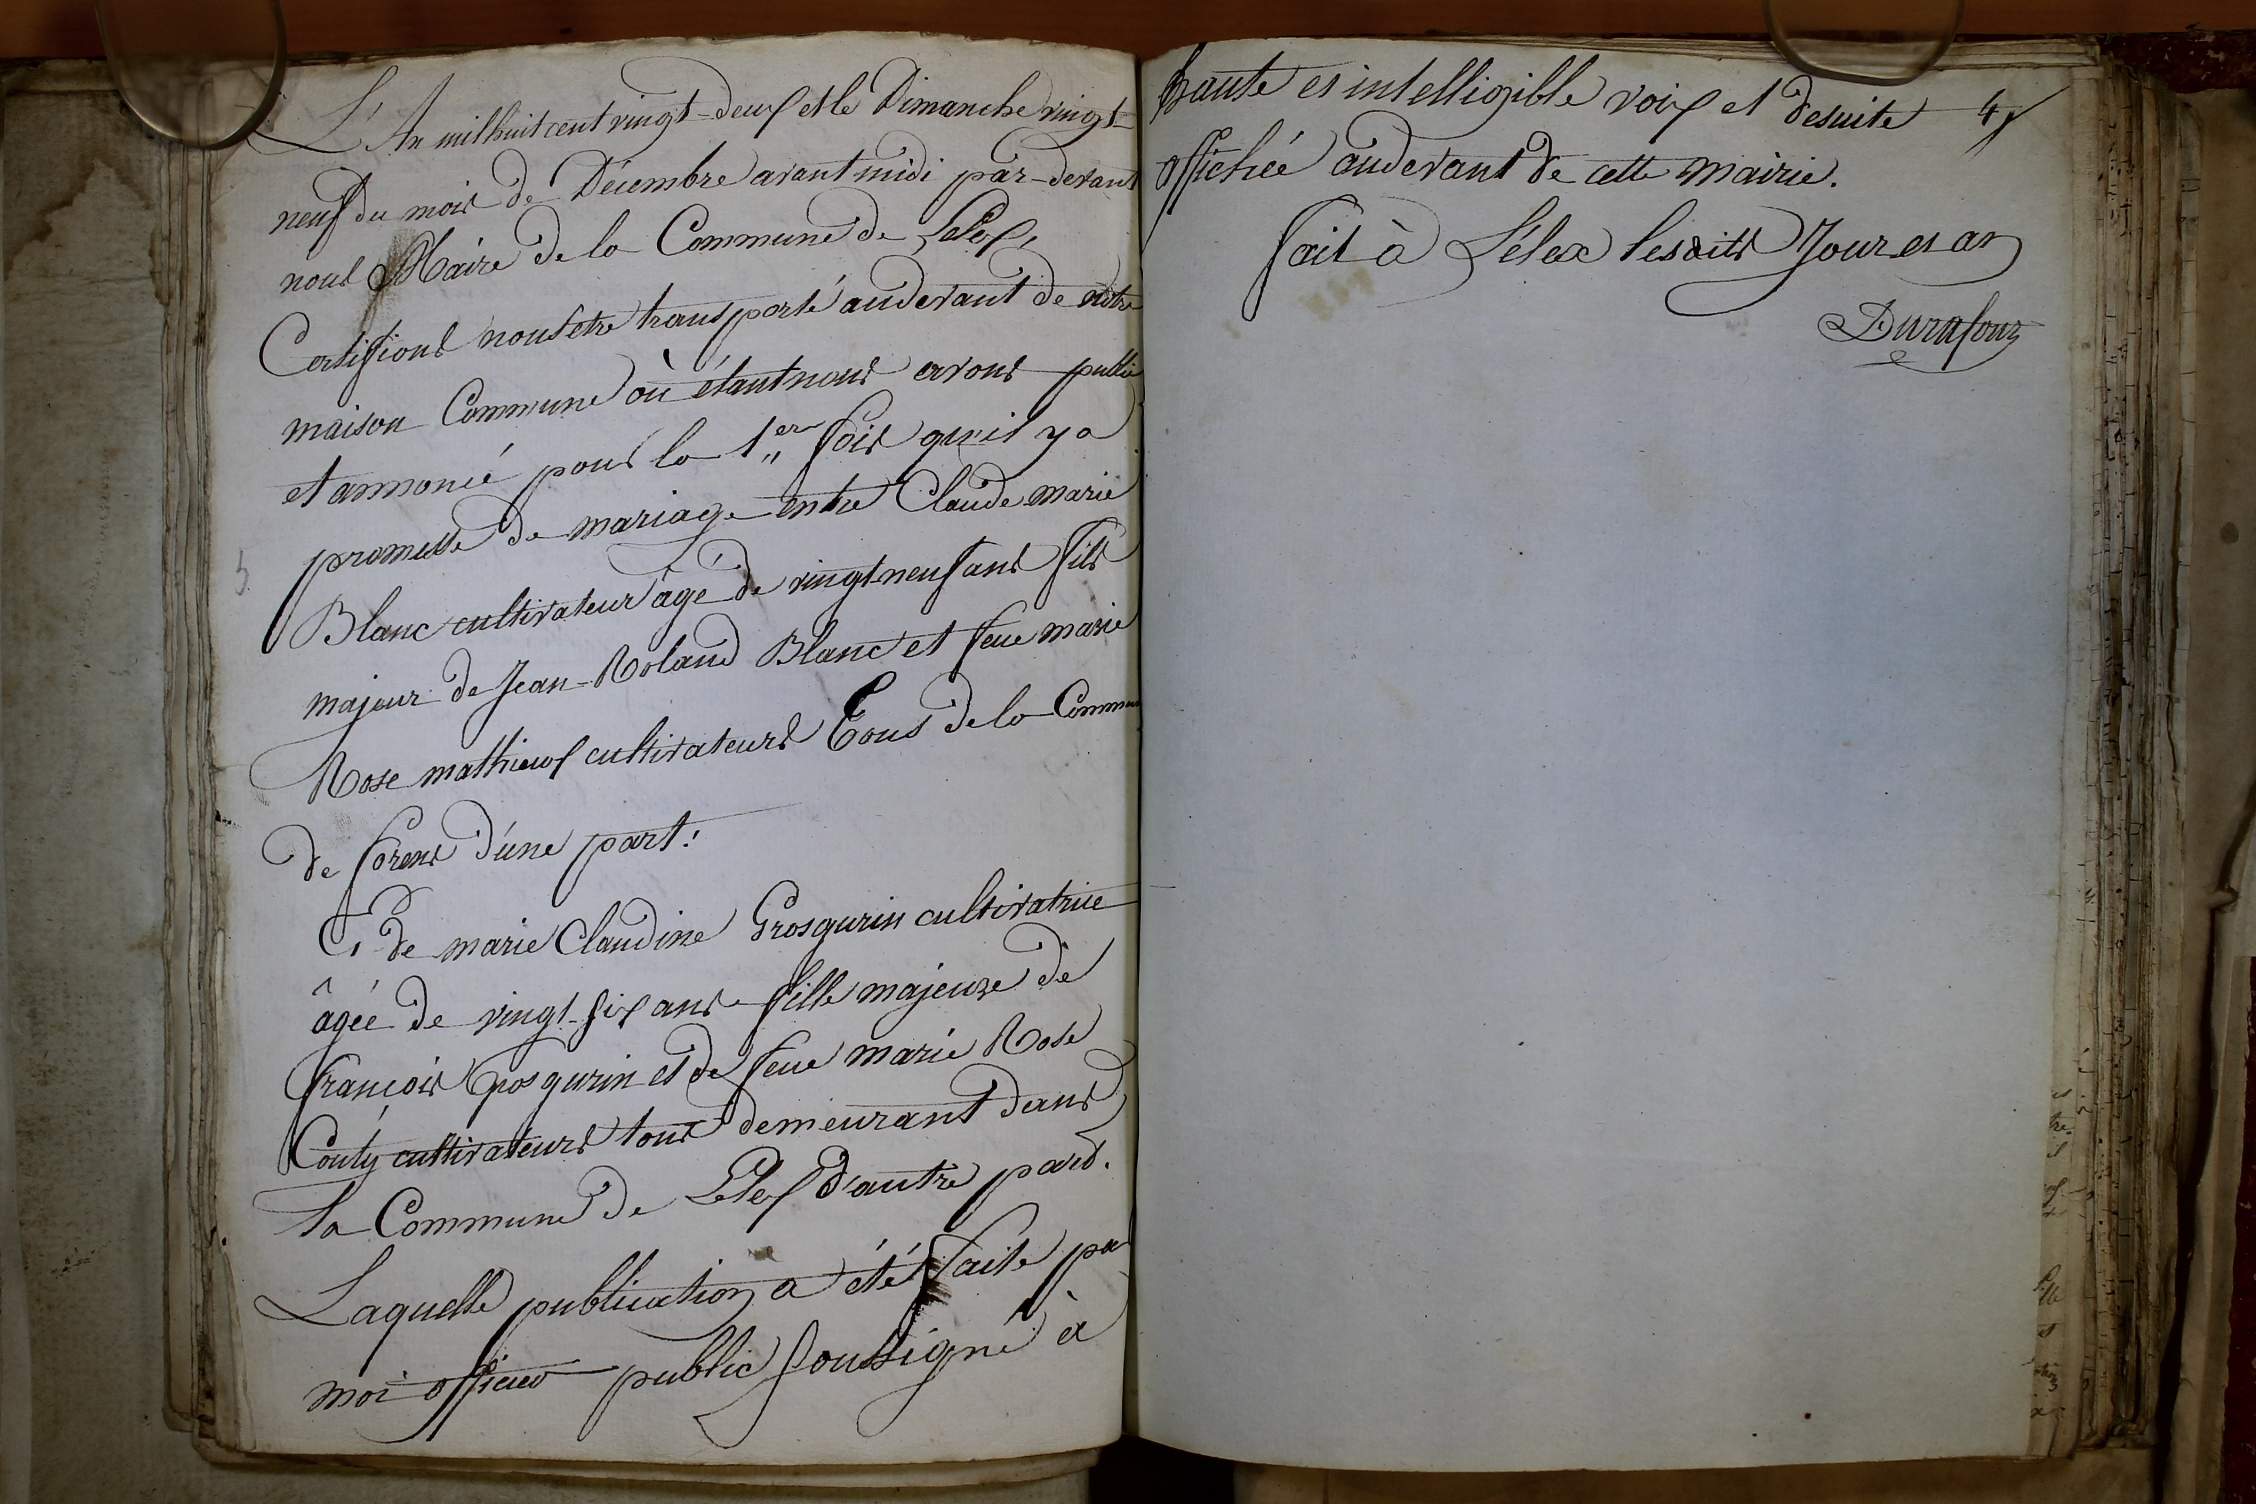 L'An mil huit cent vingt-deux et le Dimanche vingt-
neuf du mois de Décembre avant midi par-devant
nous Maire de la Commune de Lélex,
Certifions nous etre transporté audevant de notre
maison Commune où étant nous avons publié
et annoncé pour la 1.ere fois qu'il y a
promesse de mariage entre Claude marie
Blanc cultivateur âgé de vingt neuf ans fils
majeur de Jean-Roland Blanc et feue marie
Rose mathieux cultivateurs Tous de la Commune
de forens d'une part.
Et de marie Claudine Grosgurin cultivatrice
âgée de vingt-six ans fille majeure de
françois Grosgurin et de feue marie Rose
Couty cultivateurs tous demeurant dans
la Commune de Lélex d'autre part.
Laquelle publication a été faite par
moi officier public soussigné à
haute et intelligible voix et desuite 4
affichée audevant de cette mairie.
fait à Lélex lesdits Jour et an
Durafour